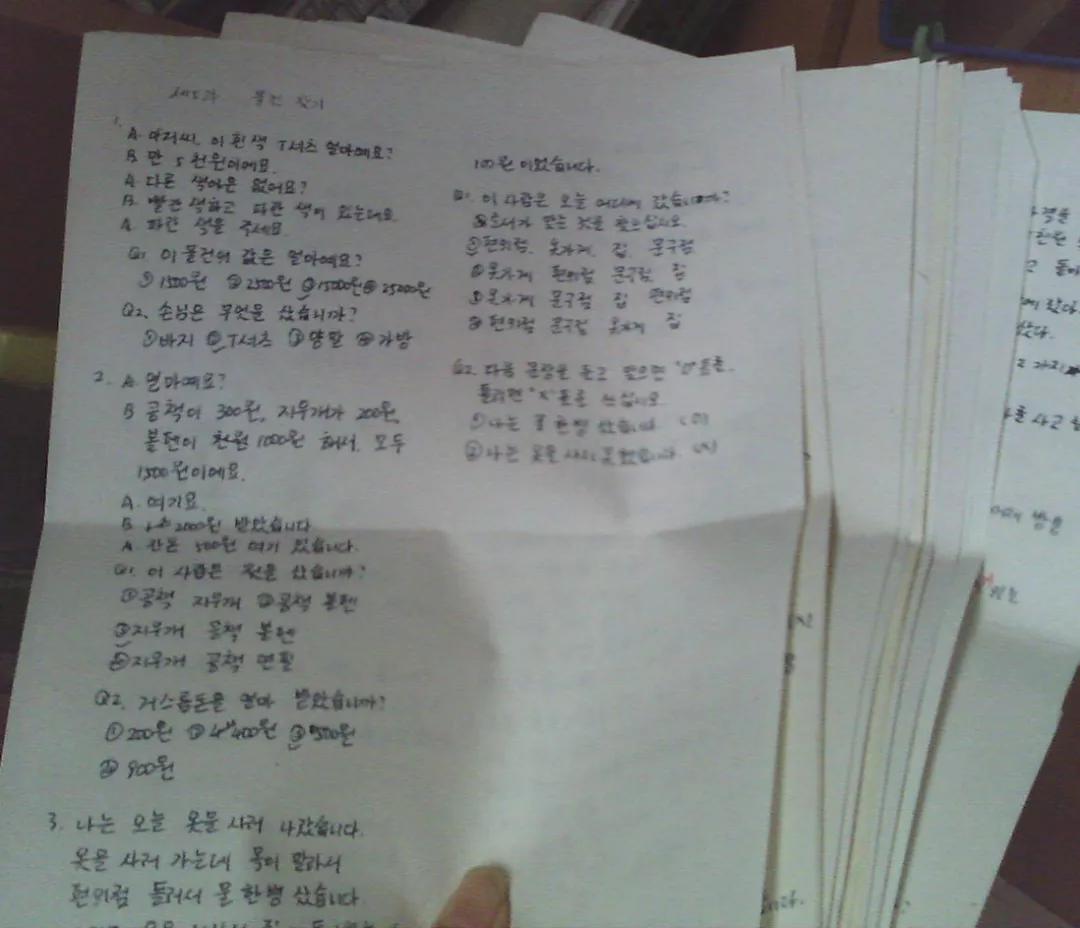 제5과 물건 찾기
1.
A. 아저씨, 이 흰색 T셔츠 얼마예요?
B. 만 5천원이에요.
A. 다른 색아은 없어요?
B. 빨간색하고 파란 색이 있는데요.
A. 파란 색을 주세요.
Q1. 이 물건의 값은 얼마예요?
① 1500원 ② 2500원 ③ 15000원 ④ 25000원
Q2. 손님은 무엇을 샀습니까?
① 바지 ② T셔츠 ③ 양말 ④ 가방
2. A. 얼마예요?
B. 공책이 300원, 지우개가 200원,
볼펜이 천원 1000원 해서, 모두
1500원이에요.
A. 여기요.
B. 2000원 받았습니다
A. 잔돈 500원 여기 있습니다.
Q1. 이 사람은 뭣을 샀습니까?
① 공책 지우개 ② 공책 볼펜
③ 지우개 공책 볼펜
④ 지우개 공책 연필
Q2. 거스름돈을 얼마 받았습니까?
① 200원 ② 400원 ③ 500원
④ 900원
3. 나는 오늘 옷을 사러 나갔습니다.
옷을 사러 가는데 목이 말라서
편의점 들러서 물 한병 샀습니다.
100원 이었습니다.
Q1. 이 사람은 오늘 어디에 갔습니까?
순서가 맞는 것을 찾으십시오.
① 편의점 옷가게 집 문구점
② 옷가게 편의점 문구점 집
③ 옷가게 문구점 집 편의점
④ 편의점 문구점 옷가게 집
Q2. 다음 문장을 듣고 맞으면 "O"표를,
틀리면 "X"표를 쓰십시오.
① 나는 물 한병 샀습니다. (O)
② 나는 옷을 사지 못했습니다. (X)